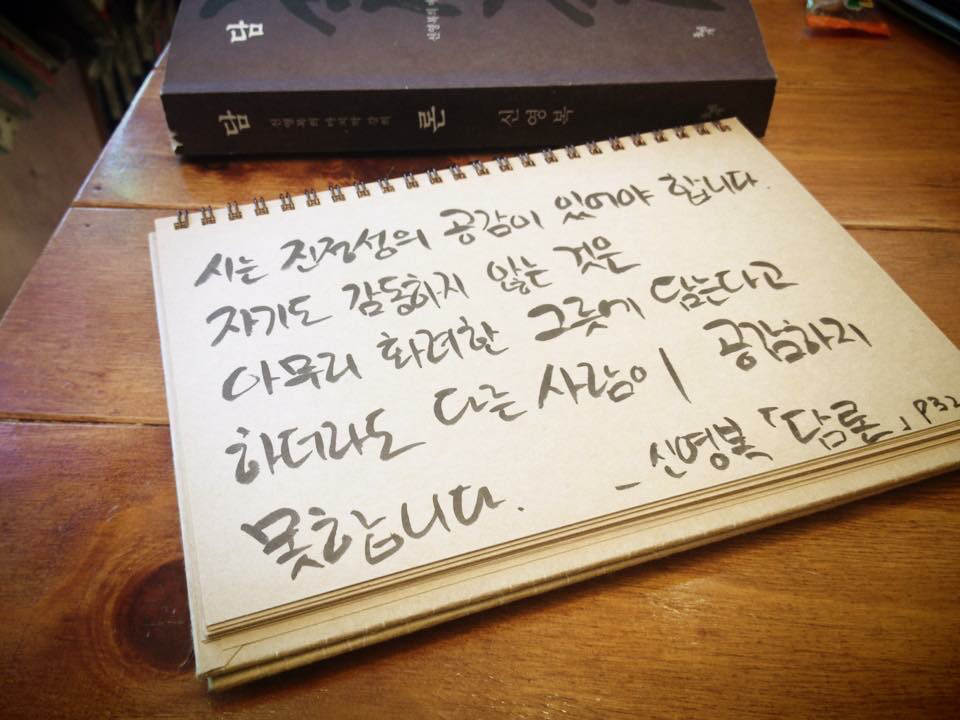 담
담 신영복의 마지막 강의 론 신영복
시는 진정성의 공감이 있어야 합니다.
자기도 감동하지 않는 것은
아무리 화려한 그릇에 담는다고
하더라도 다른 사람이 공감하지
못합니다. - 신영복 「담론」 P32